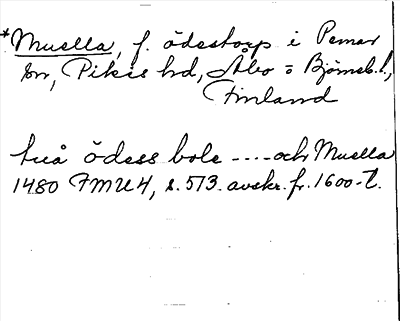 *Muella, f. ödestorp i Pemar
sn, Pikis hd, Åbo o Björneb. l.,
Finland
två ödess bole ---- och Muella
1480 FMU 4, s. 573. avskr. fr. 1600-t.